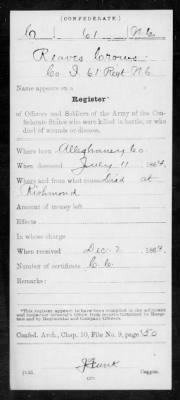 (CONFEDERATE)
C | 61 | N.C.
Reaves Crouse
Co. I, 61 Regt. N.C.
Name appears on a
Register*
of Officers and Soldiers of the Army of the Confederate States who were killed in battle, or who
died of wounds or disease.
Where born Alleghaney Co.
When deceased July 11, 1864
Where and from what cause Died at
Richmond
Amount of money left
Effects
In whose charge
When received Dec. 2, 1864
Number of certificate C.C.
Remarks:
*This register appears to have been compiled in the
Confed. Arch., Chap. 10, File No. 9, page 50
Copyist.